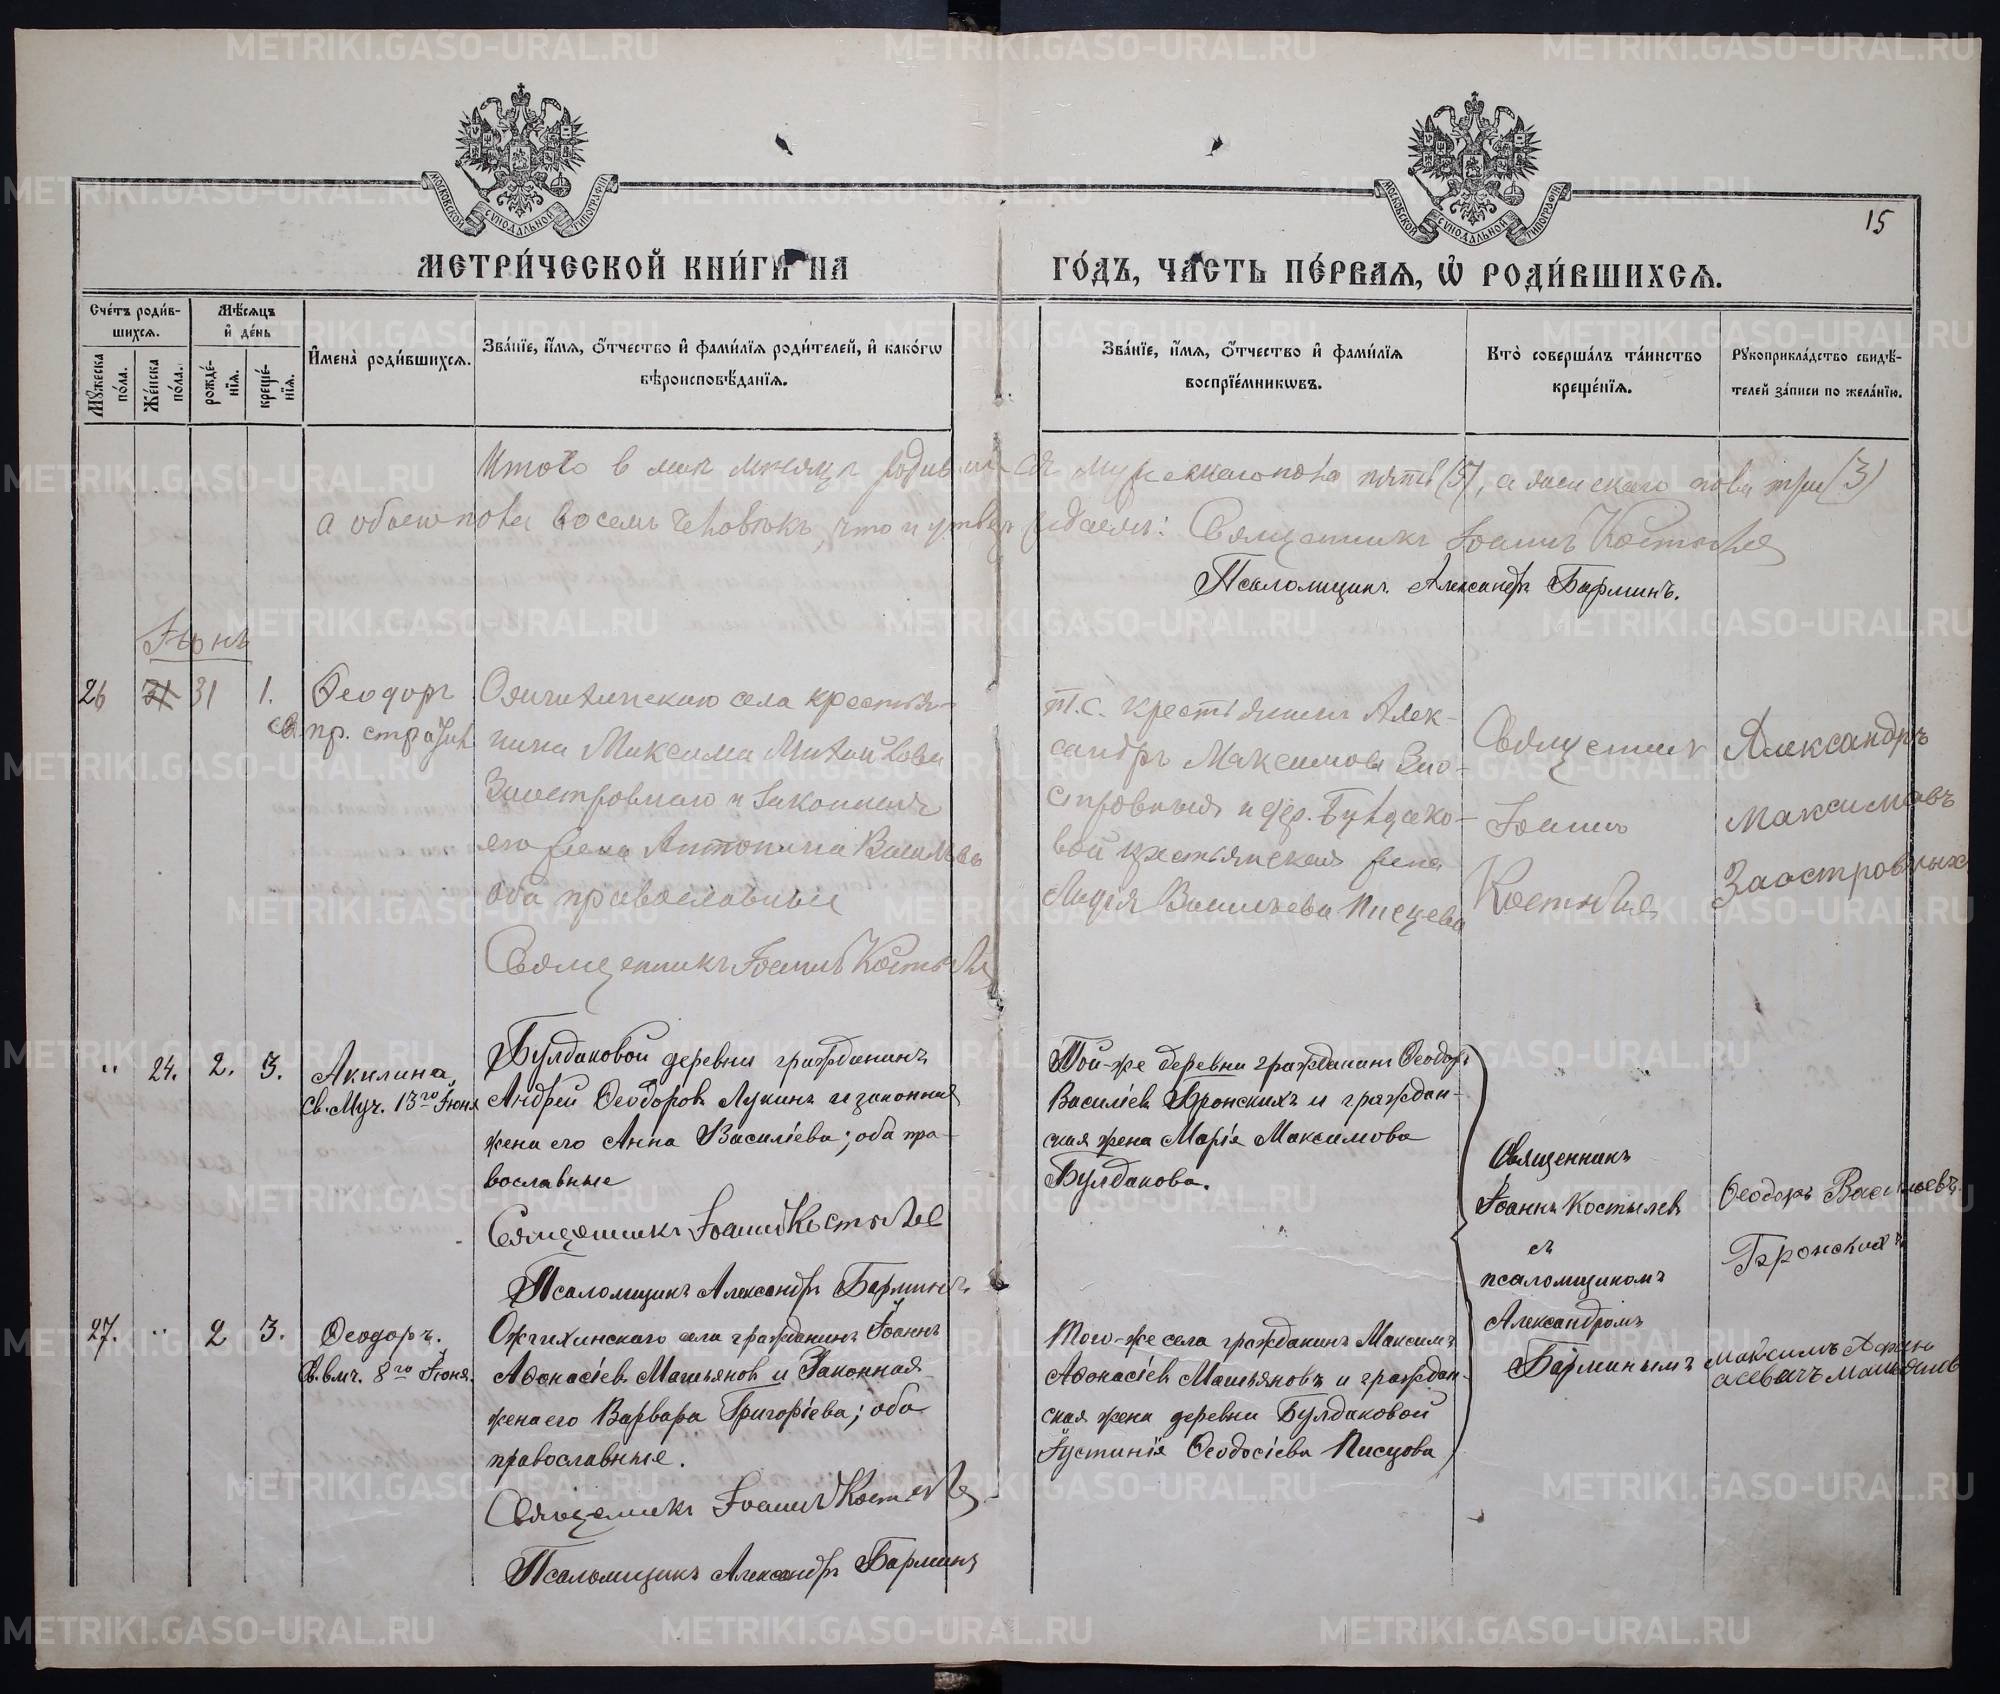 15
МЕТРИ́ЧЕСКОЙ КНИ́ГИ НА ГО́ДЪ, ЧА́СТЬ ПЕ́РВАЯ, Ѡ҆ РОДИ́ВШИХСЯ.
Сче́тъ роди́вшихся.
Мꙋжеска по́ла.
Же́нска по́ла.
Мѣ́сяцъ и҆ де́нь
рожде́нїя.
креще́нїя.
И҆мена̀ роди́вшихся.
Зва́нїе, и҆́мя, ѻ҆́тчество и҆ фами́лїя роди́телей, и҆ како́гѡ
вѣроисповѣ́данїя.
Зва́нїе, и҆́мя, ѻ҆́тчество и҆ фами́лїя
воспрїе́мникѡвъ.
Кто̀ соверша́лъ та́инство
креще́нїя.
Рꙋкоприкла́дство свидѣ́-
телей за́писи по жела́нїю.
Итого в мае месяце родившихся мужескаго пола пять (5), а женскаго пола три (3)
а обоего пола восемь человѣкъ, что и утверждаемъ: Священникъ Іоаннъ Костылев
Псаломщикъ Александръ Барминъ.
Іюнь
26 31 31 1.
Ѳеодоръ
пр. стра
Ожгихинскаго села крестья-
нина Максима Михайлова
Заостровныхъ и законная
его жена Антонина Васильева
оба православные
Священникъ Іоаннъ Костылев
т.с. крестьянинъ Алек-
сандръ Максимовъ Зао-
стровныхъ и дер. Булдако-
вой крестьянская жена
Лидія Васильева Писцева
Священник
Іоаннъ
Костылев
Александръ
Максимовъ
Заостровныхъ
" 24. 2. 3.
Акилина
св. муч. 13го Іюня
Булдаковой деревни гражданинъ
Андрей Ѳеодоровъ Лукинъ и законная
жена его Анна Василіева; оба пра-
вославные
Священникъ Іоаннъ Костылев
Псаломщикъ Александръ Барминъ
Той-же деревни гражданинъ Ѳеодоръ
Василіевъ Бронскихъ и граждан-
ская жена Марія Максимова
Булдакова.
Священникъ
Іоаннъ Костылевъ
съ
псаломщикомъ
Александромъ
Барминымъ
Ѳеодоръ Васильевъ
Бронскихъ
27. " 2 3.
Ѳеодоръ.
Св. вмч. 8го Іюня.
Ожгихинскаго села гражданинъ Іоаннъ
Аѳонасіевъ Матьянов и Законная
жена его Варвара Григоріева; оба
православные.
Священникъ Іоаннъ Костылев
Псаломщикъ Александръ Барминъ
Того-же села гражданинъ Максимъ
Аѳонасіевъ Матьяновъ и граждан-
ская жена деревни Булдаковой
Іустинія Ѳеодосіева Писцова
Максимъ Афон
асевичъ
METRIKI.GASO-URAL.RU